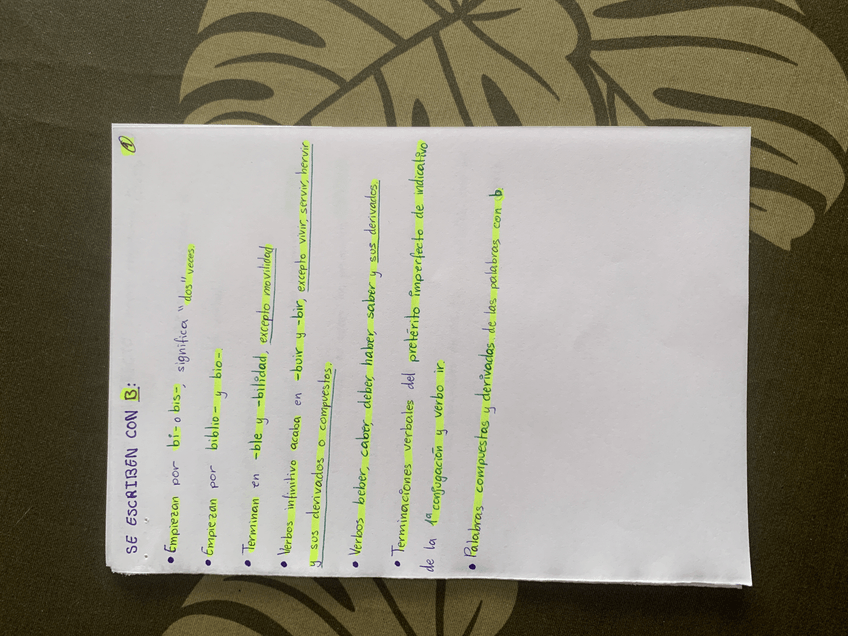 1
SE ESCRIBEN CON B:
• Empiezan por bi- o bis-, significa "dos" veces.
• Empiezan por biblio- y bio-.
• Terminan en -ble y -bilidad, excepto movilidad
• Verbos infinitivo acaba en -buir y -bir, excepto vivir, servir, hervir
y sus derivados o compuestos.
• Verbos beber, caber, deber, haber, saber y sus derivados.
• Terminaciones verbales del pretérito imperfecto de indicativo
de la 1ª conjugación y verbo ir.
• Palabras compuestas y derivadas de las palabras con b.